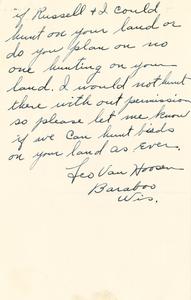 if Russell & I could
hunt on your land or
do you plan on no
one hunting on your
land. I would not hunt
there with out permission
so please let me know
if we can hunt birds
on your land as ever.
Leo Van Hoosen
Baraboo
Wis.